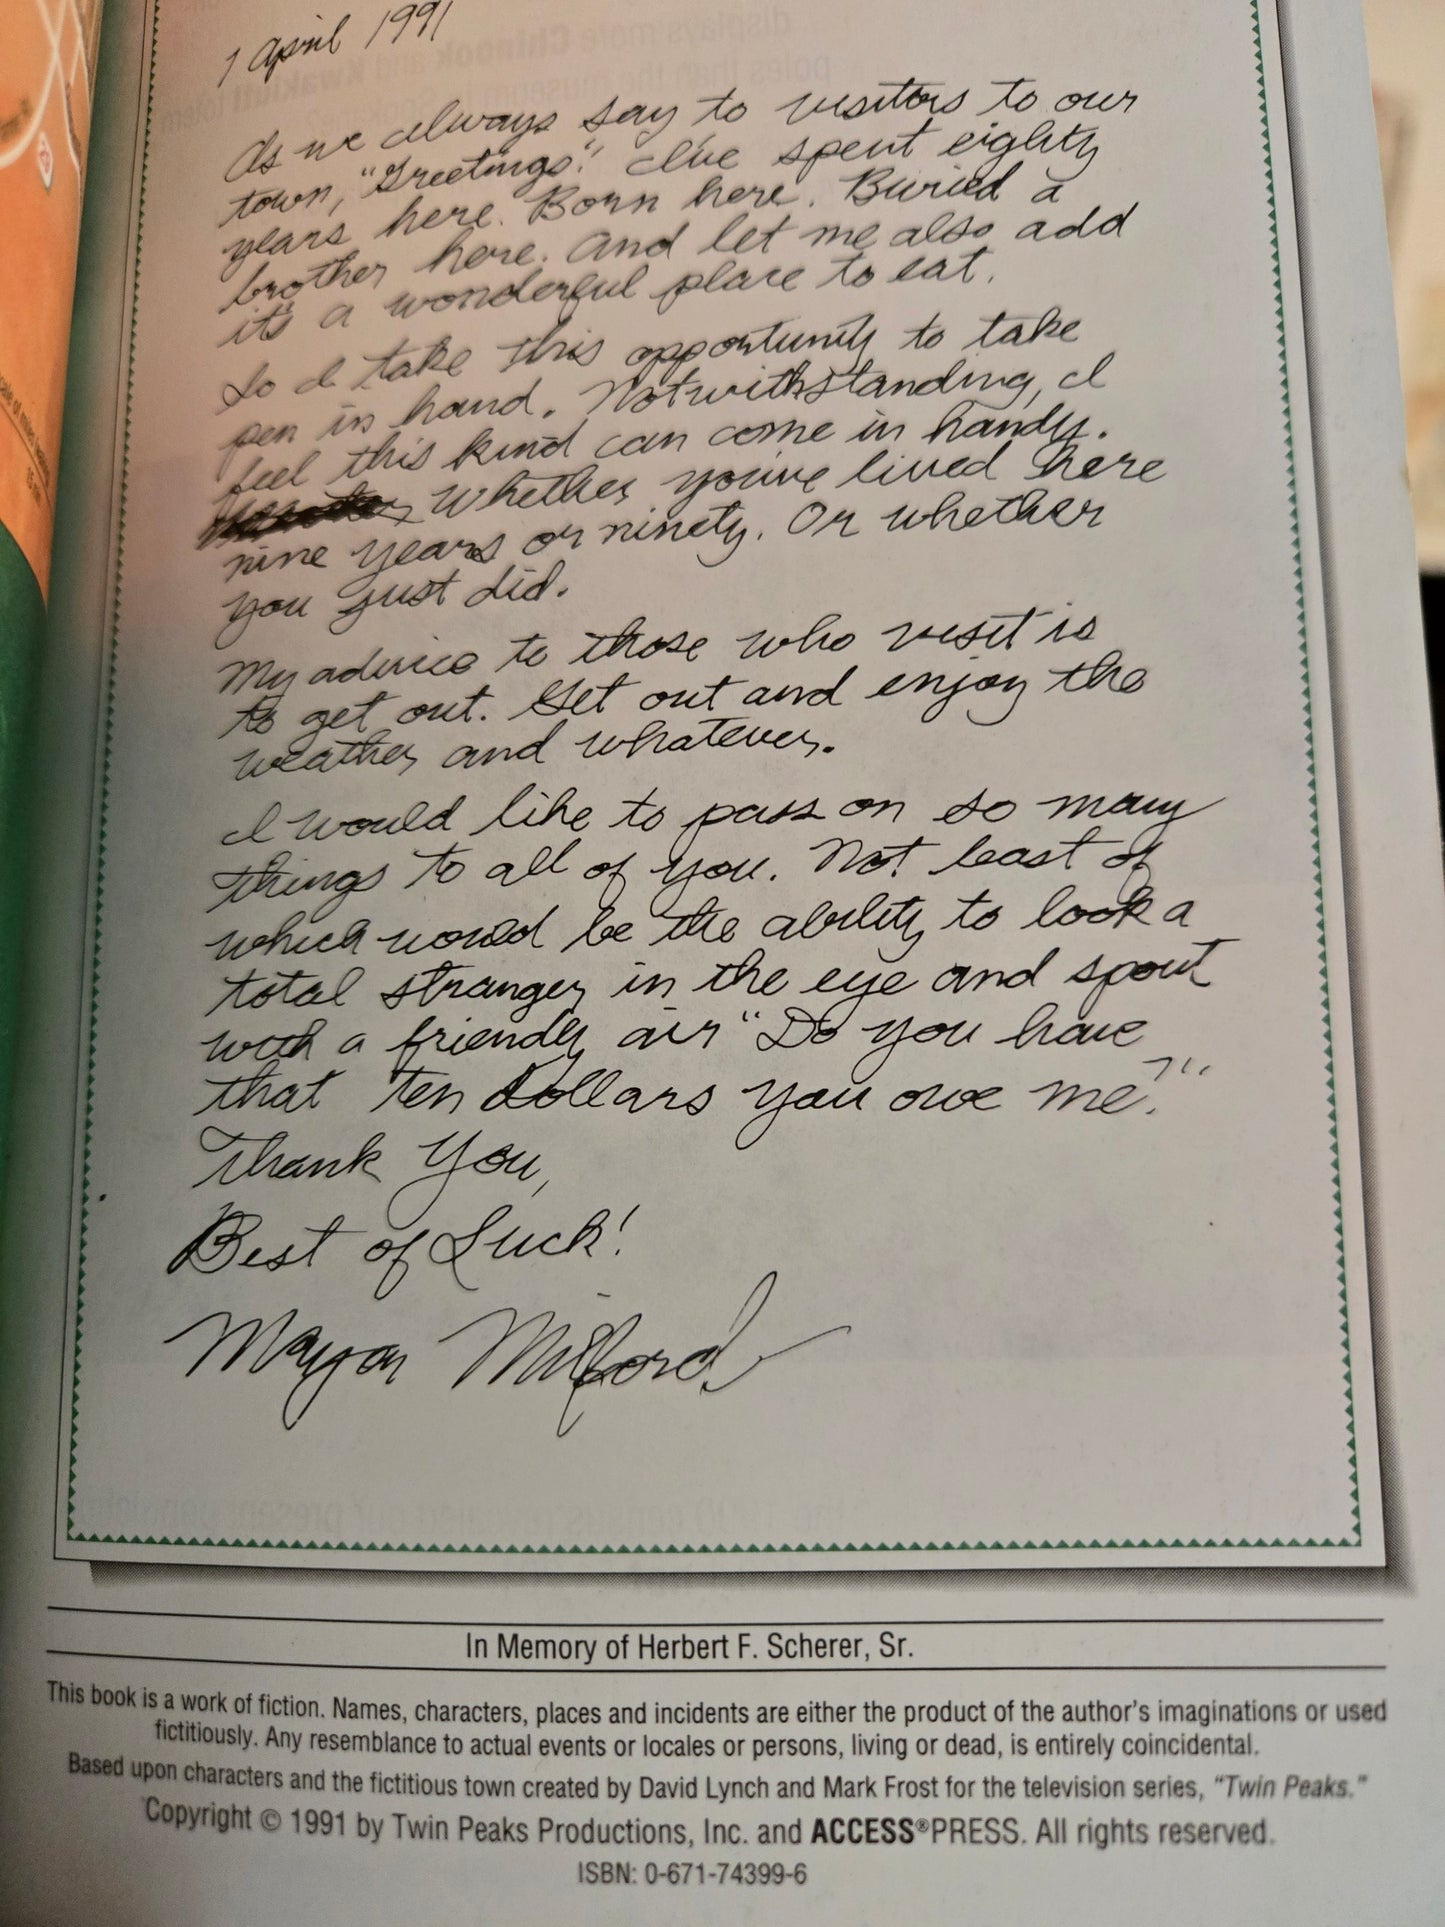 1 April 1991
As we always say to visitors to our
town, "Greetings." I've spent eighty
years here. Born here. Buried a
brother here. And let me also add
it's a wonderful place to eat.
So I take this opportunity to take
pen in hand. Notwithstanding, I
feel this kind can come in handy.
Whether you've lived here
nine years or ninety. Or whether
you just did.
My advice to those who visit is
to get out. Get out and enjoy the
weather and whatever.
I would like to pass on so many
things to all of you. Not least of
which would be the ability to look a
total stranger in the eye and spout
with a friendly air "Do you have
that ten dollars you owe me?"
Thank You,
Best of Luck!
Mayor Milford
In Memory of Herbert F. Scherer, Sr.
This book is a work of fiction. Names, characters, places and incidents are either the product of the author's imaginations or used
fictitiously. Any resemblance to actual events or locales or persons, living or dead, is entirely coincidental.
Based upon characters and the fictitious town created by David Lynch and Mark Frost for the television series, "Twin Peaks."
Copyright © 1991 by Twin Peaks Productions, Inc. and ACCESS®PRESS. All rights reserved.
ISBN: 0-671-74399-6